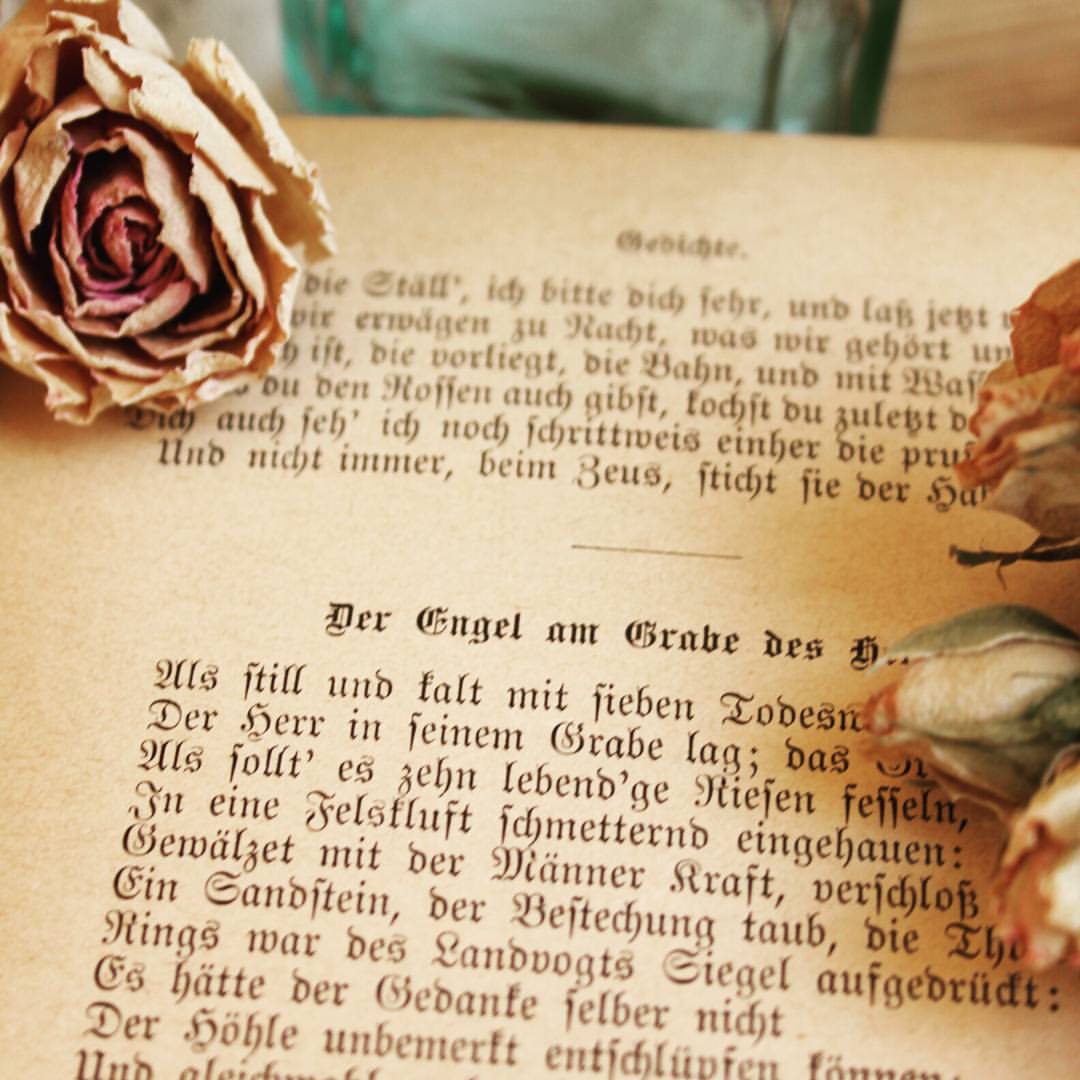 Gedichte.
die Ställ', ich bitte dich sehr, und laß jetzt
wir erwägen zu Nacht, was wir gehört
ist, die vorliegt, die Bahn, und mit
du den Rossen auch gibst, kochst du zuletzt
Dich auch seh' ich noch schrittweis einher die
Und nicht immer, beim Zeus, sticht sie der
Der Engel am Grabe des
Als still und kalt mit sieben
Der Herr in seinem Grabe lag; das
Als sollt' es zehn lebend'ge Riesen fesseln,
In eine Felskluft schmetternd eingehauen:
Gewälzet mit der Männer Kraft, verschloß
Ein Sandstein, der Bestechung taub, die
Rings war des Landvogts Siegel aufgedrückt:
Es hätte der Gedanke selber nicht
Der Höhle unbemerkt entschlüpfen können,
Und